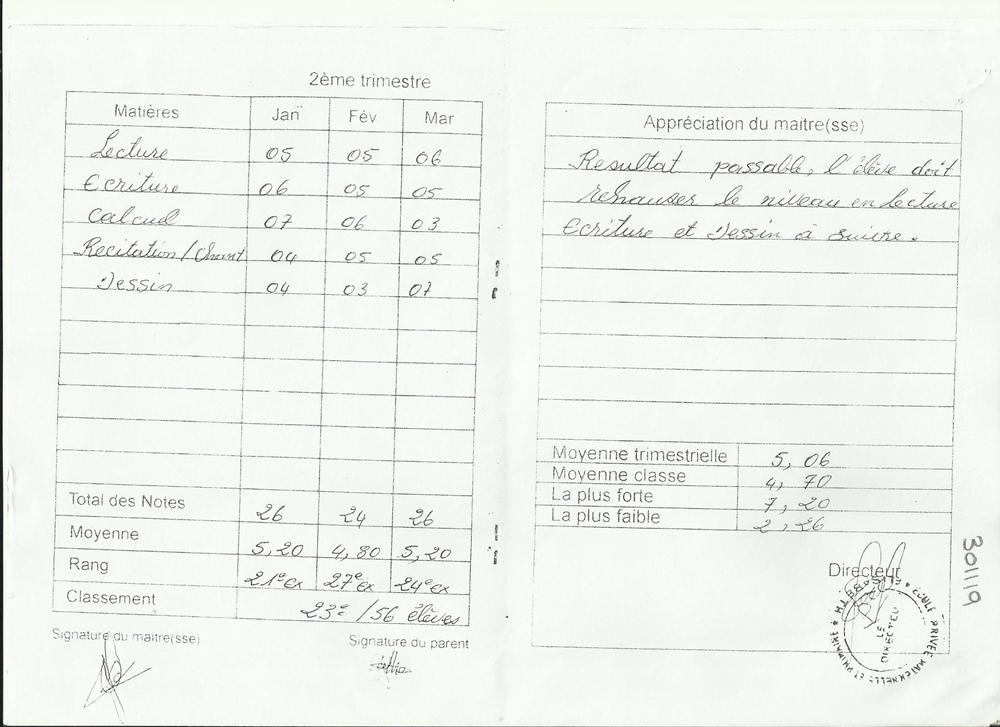 2ème trimestre
Matières Jan Fév Mar
Lecture 05 05 06
Ecriture 06 05 05
Calcul 07 06 03
Recitation/Chant 04 05 05
Dessin 04 03 07
Total des Notes 26 24 26
Moyenne 5,20 4,80 5,20
Rang 21e ex 27e ex 24e ex
Classement 23e /56 élèves
Signature du maitre(sse) Signature du parent
Appréciation du maitre(sse)
Resultat passable, l'élève doit
rehausser le niveau en Lecture
Ecriture et Dessin à suivre.
Moyenne trimestrielle 5,06
Moyenne classe 4,70
La plus forte 7,20
La plus faible 2,26
Directeur
ECOLE PRIVEE MATERNELLE ET PRIMAIRE
301119